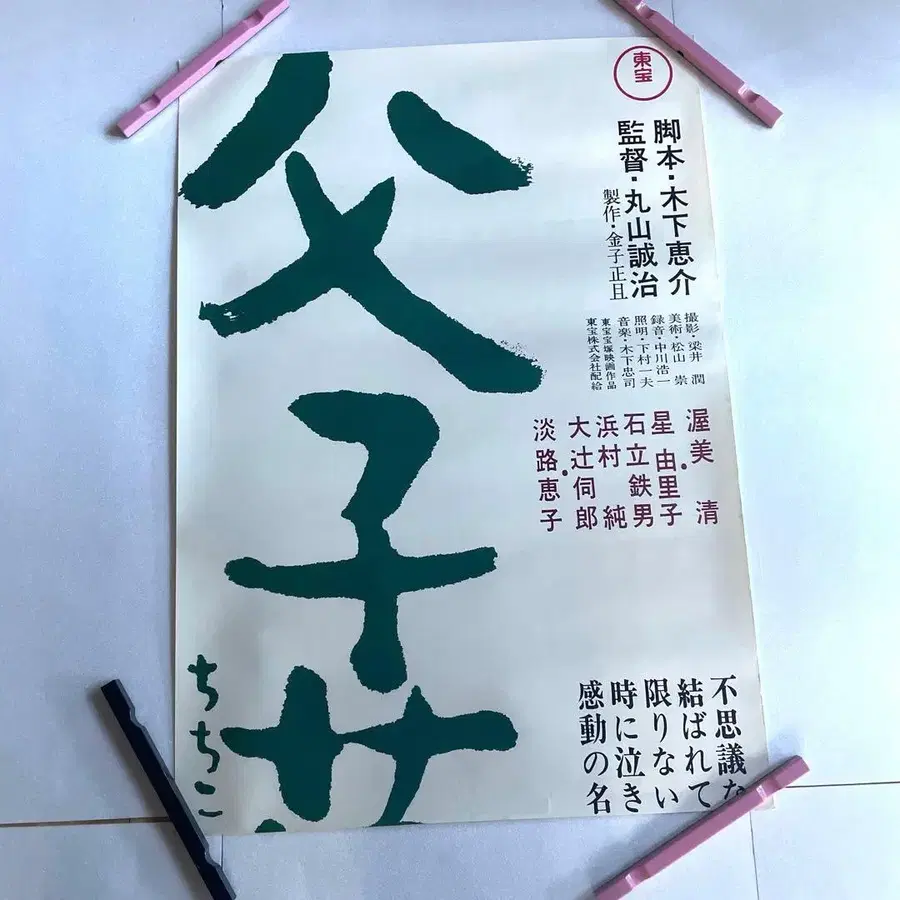 東宝
脚本・木下恵介
監督・丸山誠治
製作・金子正且
撮影・梁井 潤
美術・松山 崇
録音・中川浩一
照明・下村一夫
音楽・木下忠司
東宝宝塚映画作品
東宝株式会社配給
渥美 清
星 由里子
石立鉄男
浜村 純
大辻伺郎
淡路恵子
不思議な
結ばれて
限りない
時に泣き
感動の名
父子
ちちこ